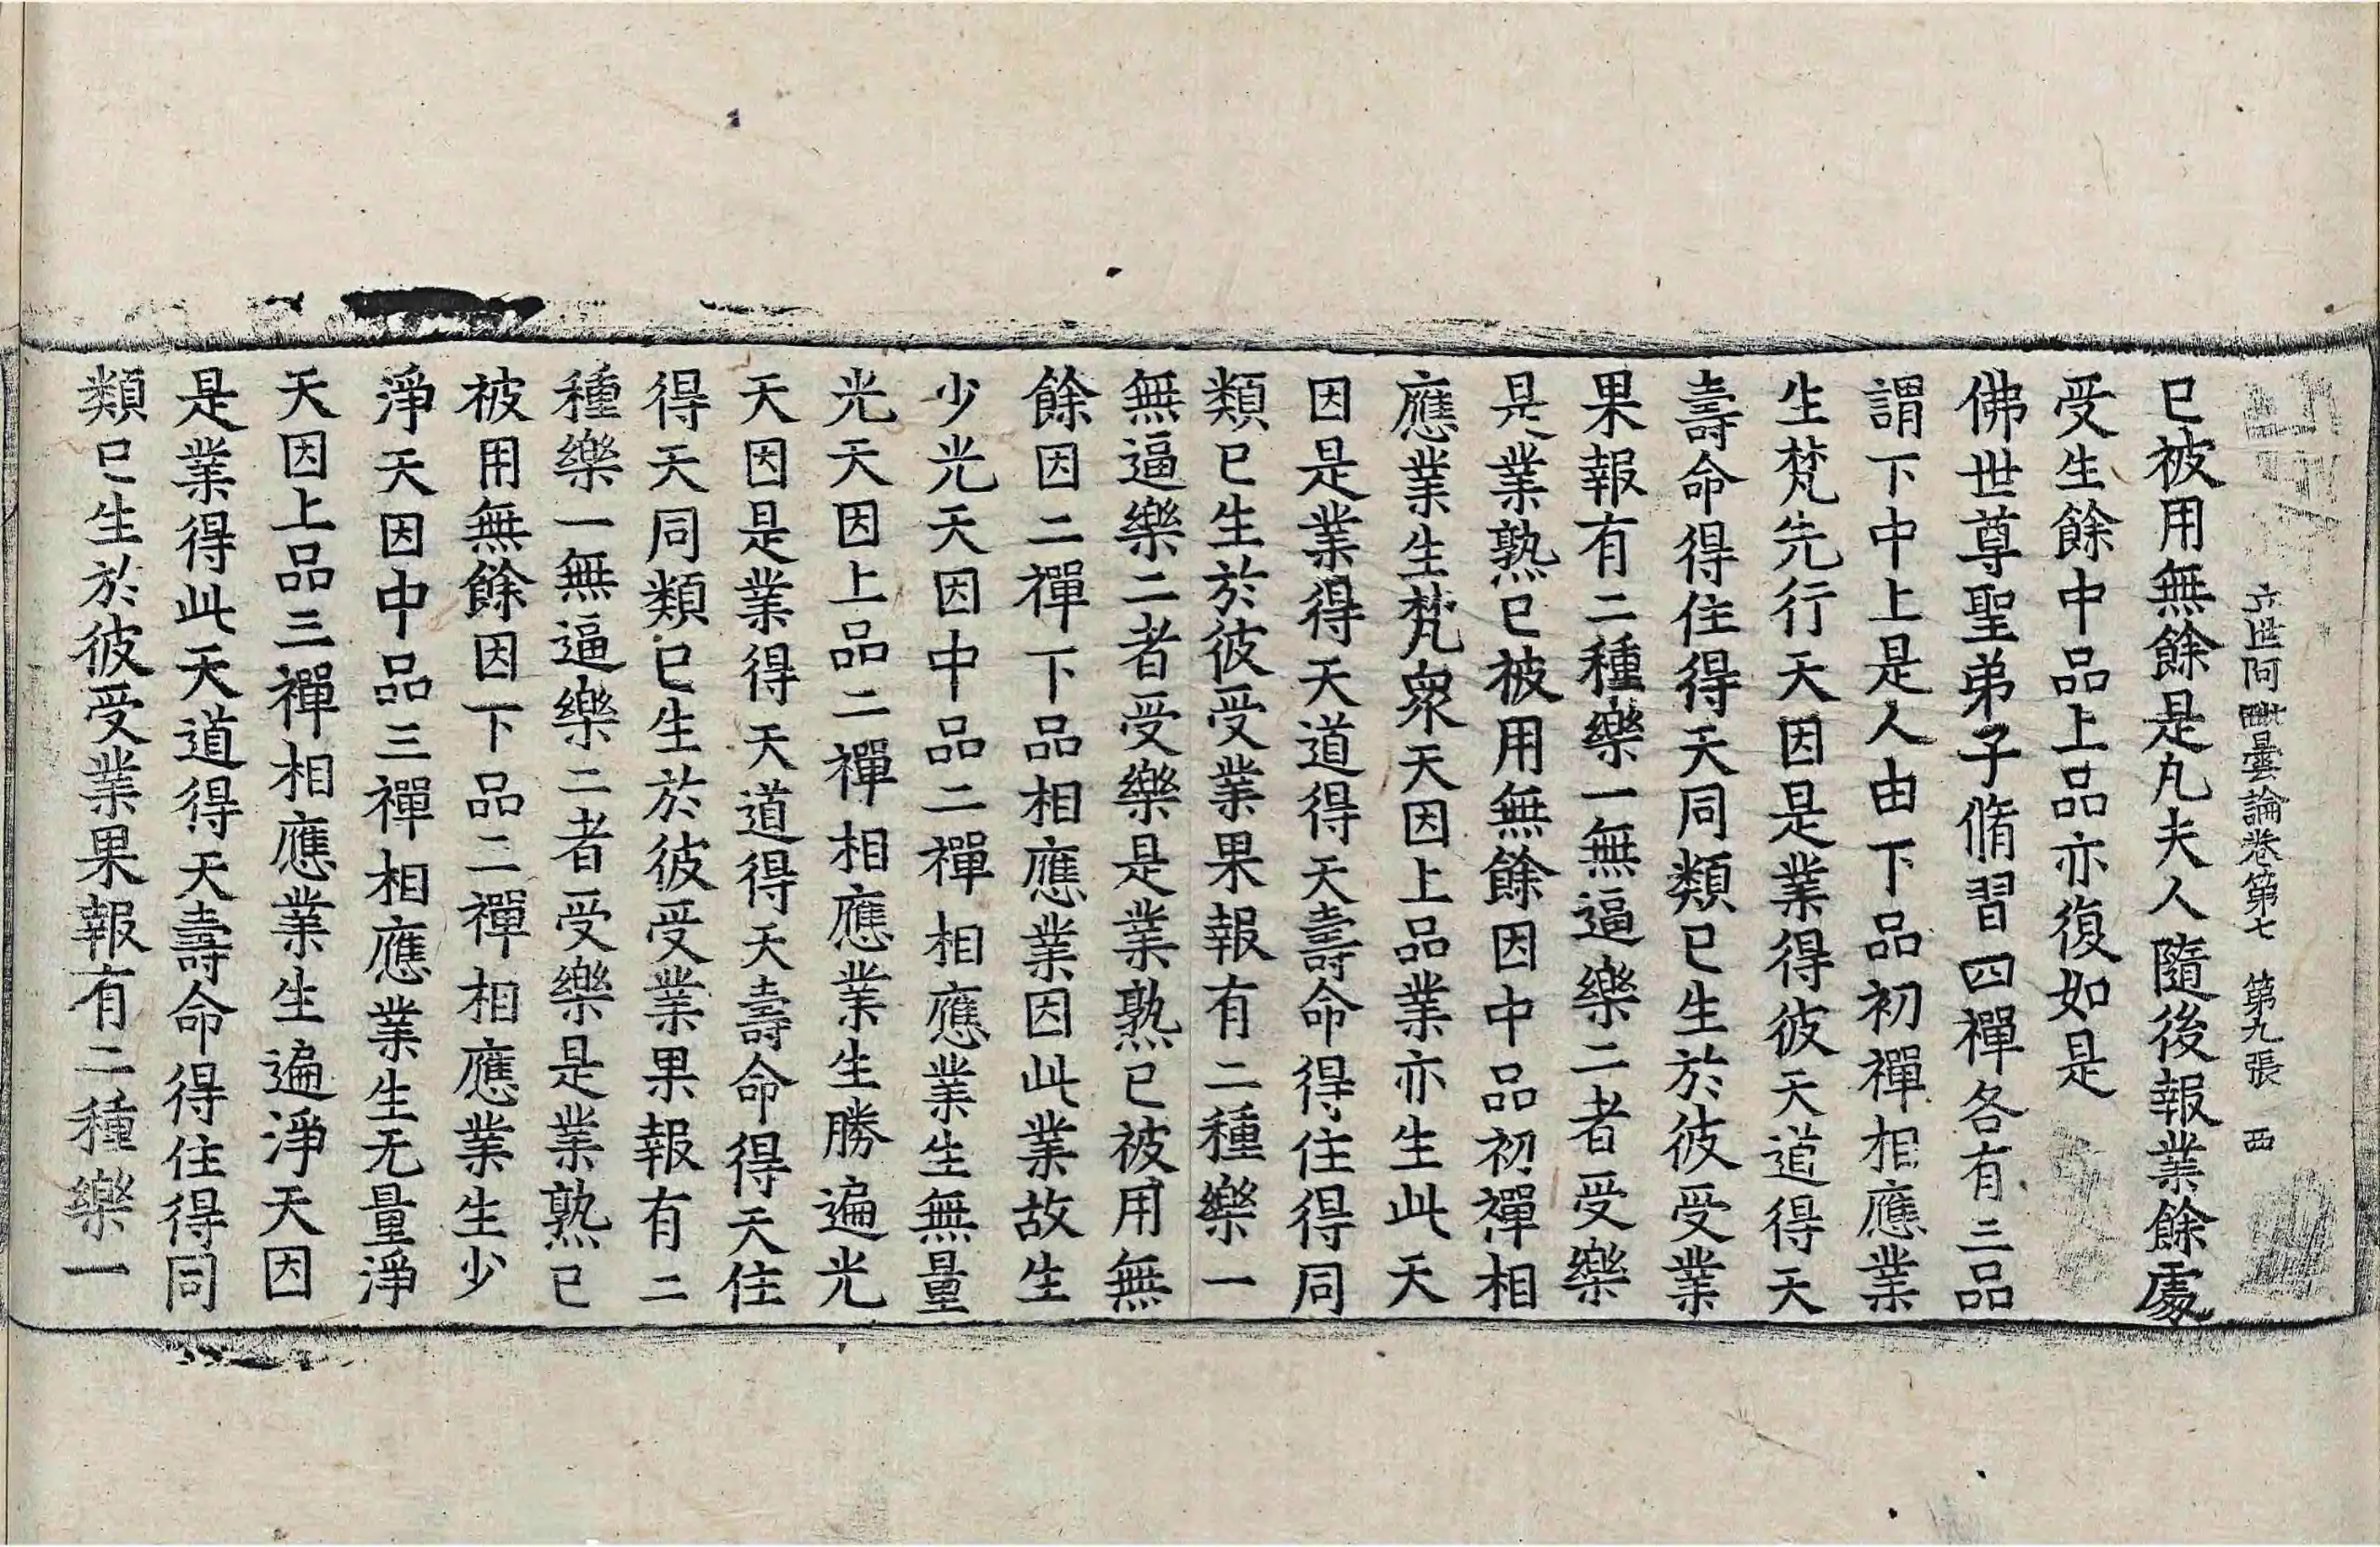 立世阿毗曇論卷第七 第九張 西
已被用無餘是凡夫人隨後報業餘處
受生餘中品上品亦復如是
佛世尊聖弟子脩習四禪各有三品
謂下中上是人由下品初禪相應業
生梵先行天因是業得彼天道得天
壽命得住得天同類已生於彼受業
果報有二種樂一無逼樂二者受樂
是業熟已被用無餘因中品初禪相
應業生梵衆天因上品業亦生此天
因是業得天道得天壽命得住得同
類已生於彼受業果報有二種樂一
無逼樂二者受樂是業熟已被用無
餘因二禪下品相應業因此業故生
少光天因中品二禪相應業生無量
光天因上品二禪相應業生勝遍光
天因是業得天道得天壽命得天住
得天同類已生於彼受業果報有二
種樂一無逼樂二者受樂是業熟已
被用無餘因下品二禪相應業生少
淨天因中品三禪相應業生无量淨
天因上品三禪相應業生遍淨天因
是業得此天道得天壽命得住得同
類已生於彼受業果報有二種樂一